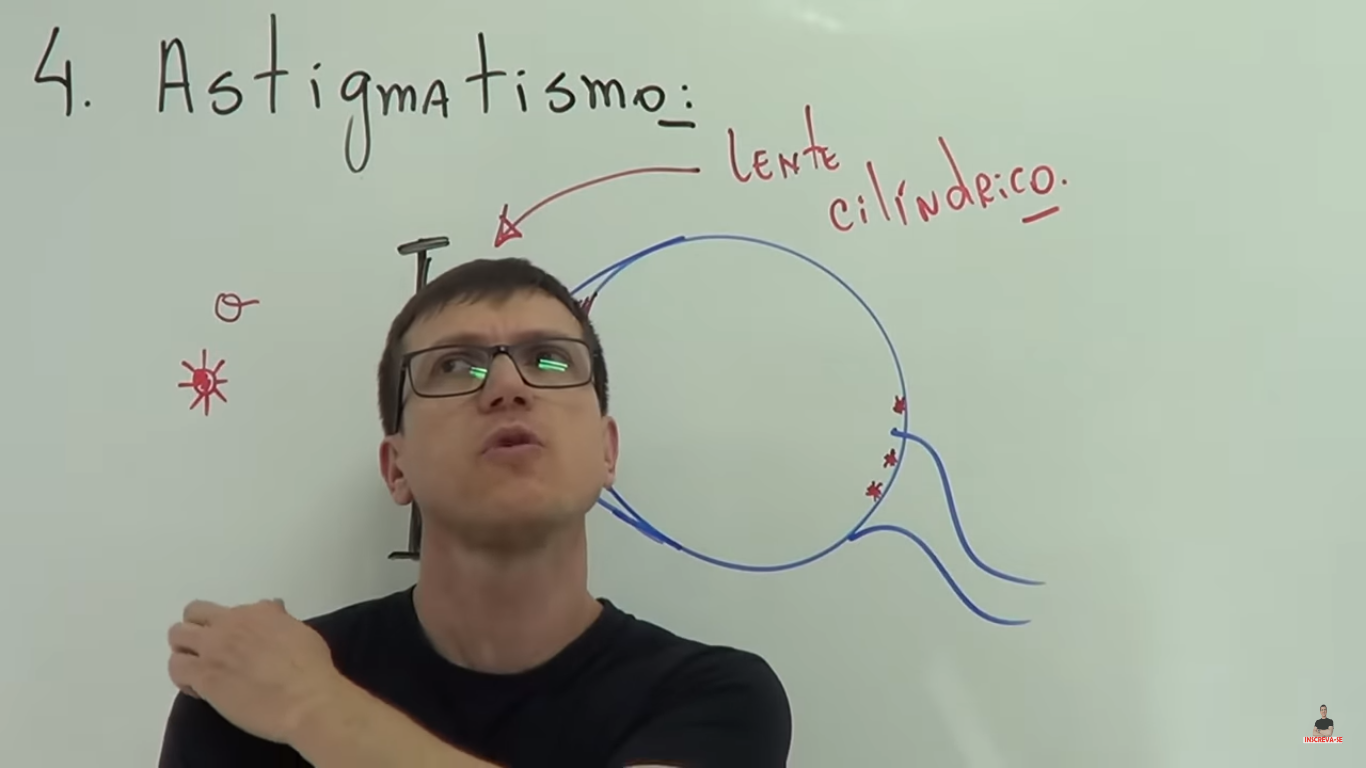 4. Astigmatismo:
lente
cilíndrico.
σ
INSCREVA-SE